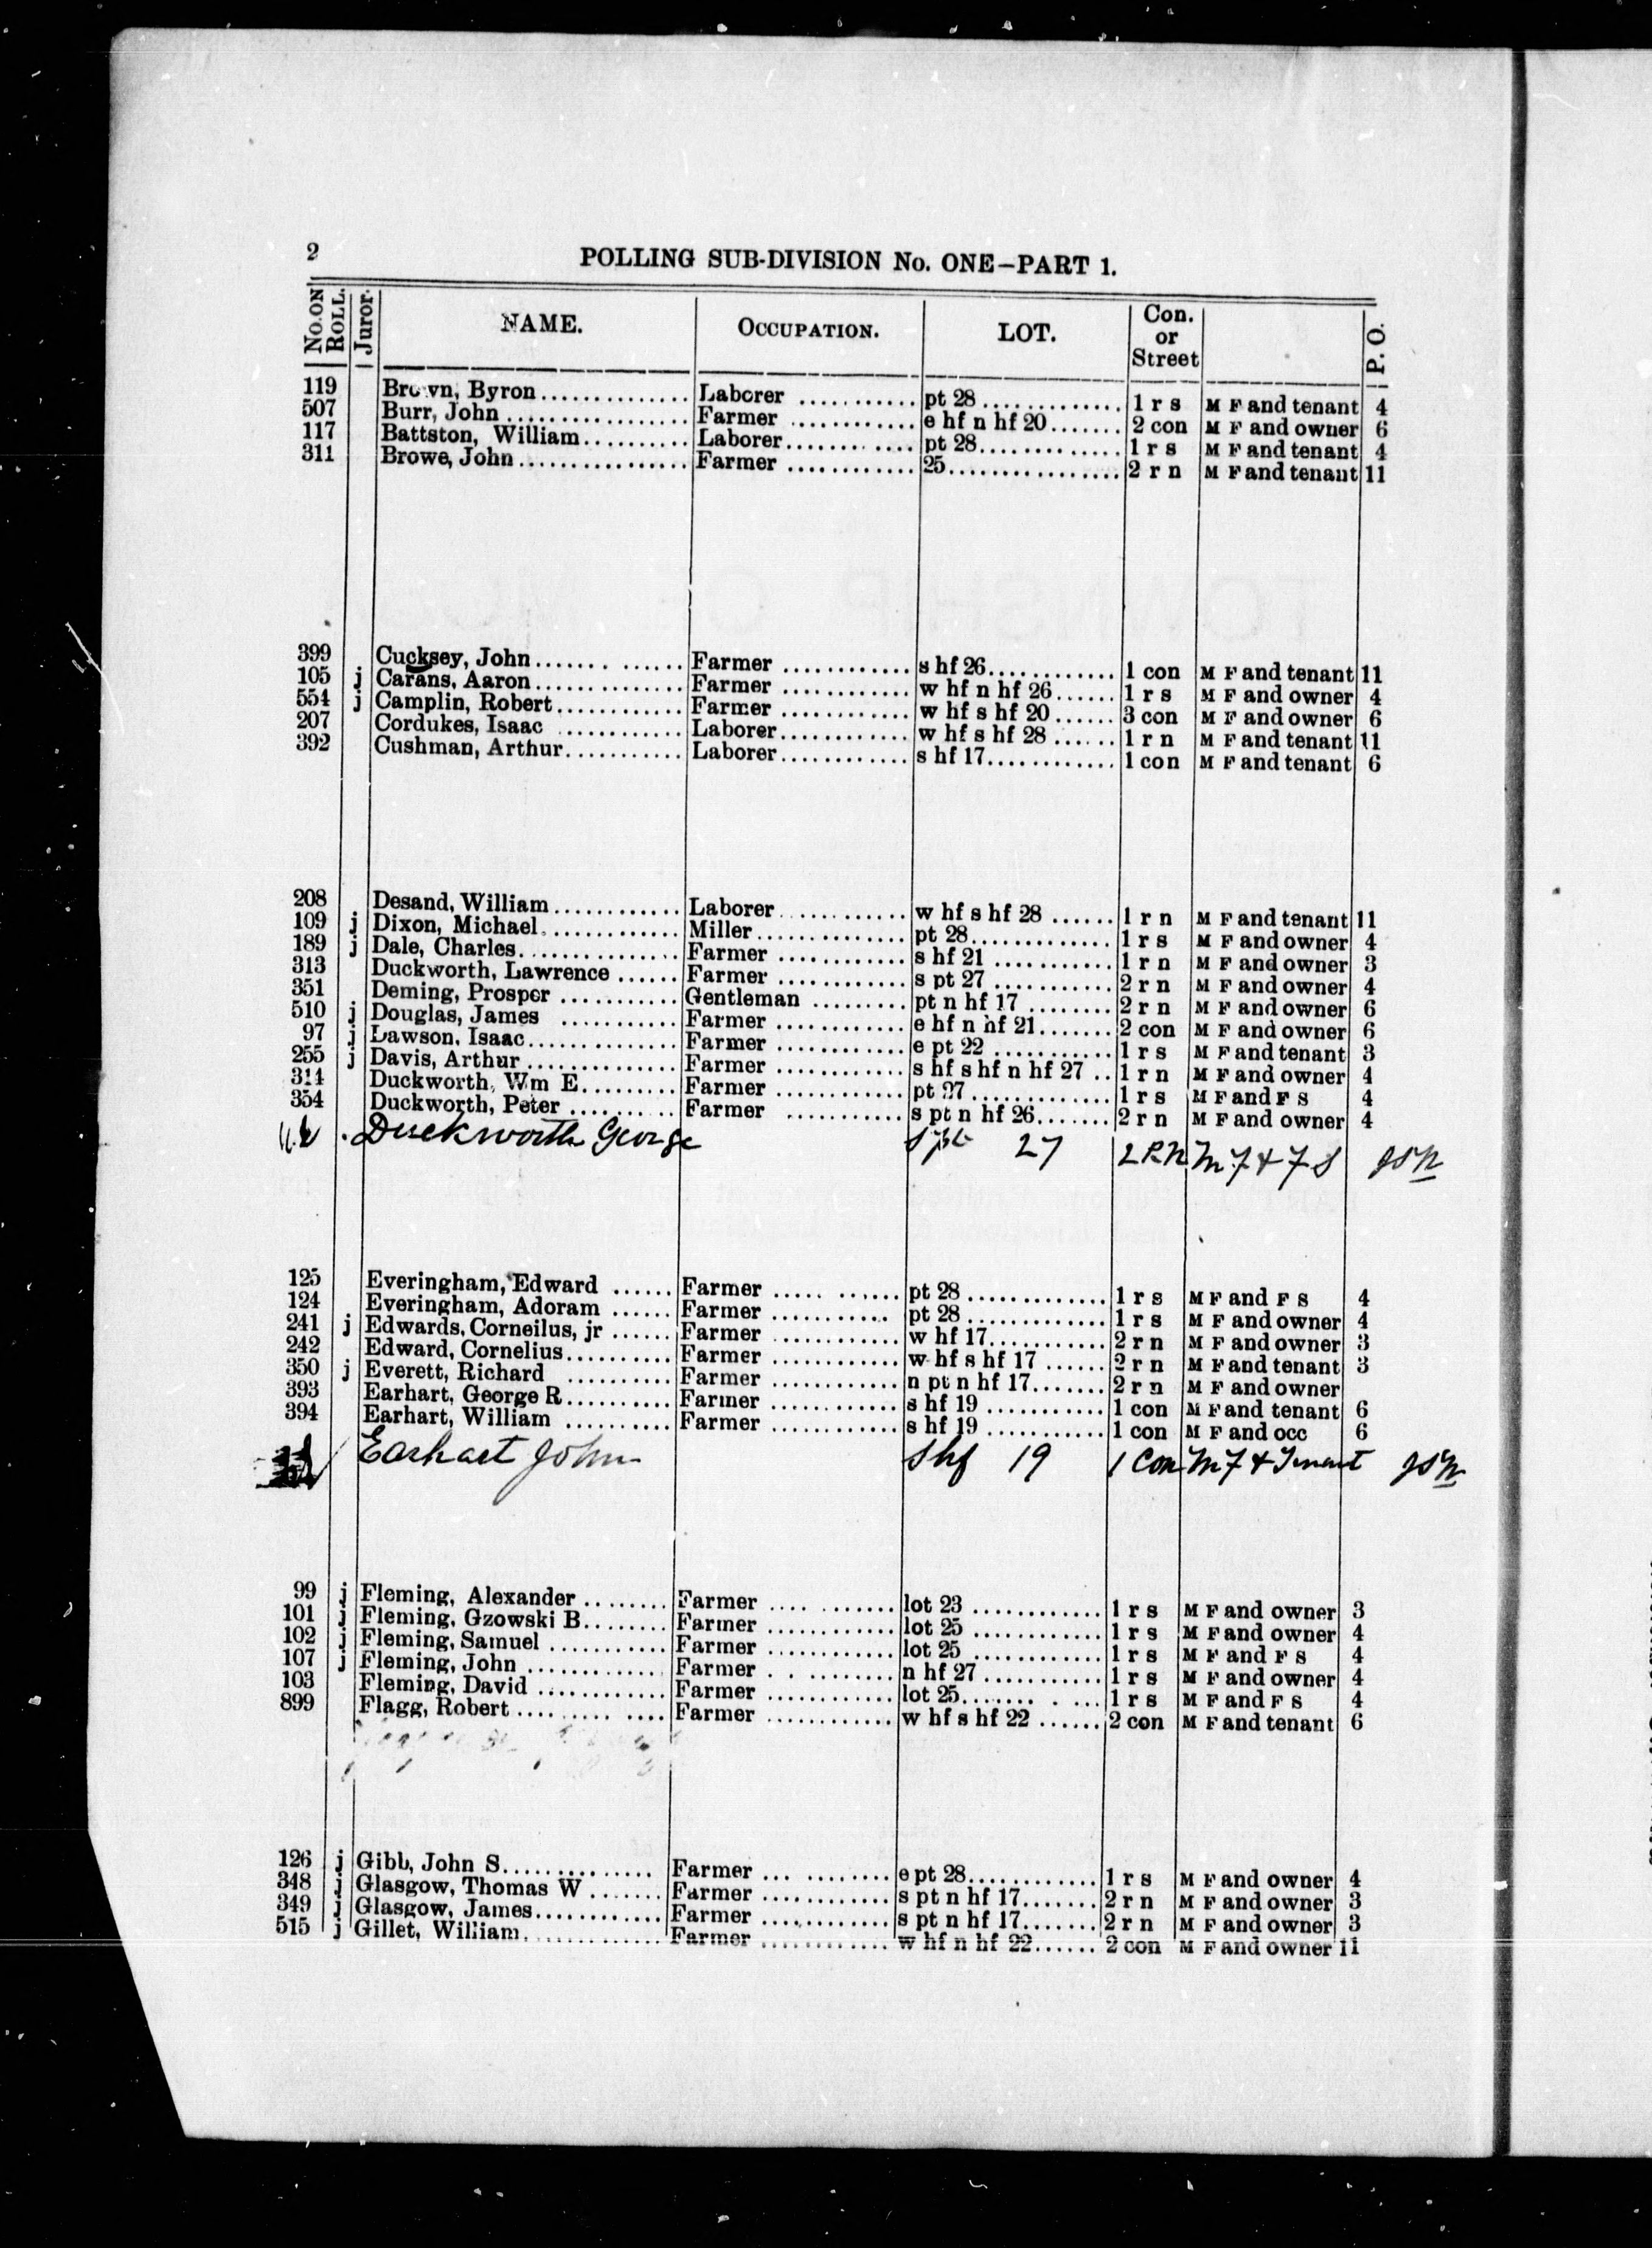 2
POLLING SUB-DIVISION No. ONE—PART 1.
No. ON ROLL. Juror. NAME. OCCUPATION. LOT. Con. or Street P. O.
119 Brown, Byron Laborer pt 28 1 r s M F and tenant 4
507 Burr, John Farmer e hf n hf 20 2 con M F and owner 6
117 Battston, William Laborer pt 28 1 r s M F and tenant 4
311 Browe, John Farmer 25 2 r n M F and tenant 11
399 Cucksey, John Farmer s hf 26 1 con M F and tenant 11
105 j Carans, Aaron Farmer w hf n hf 26 1 r s M F and owner 4
554 j Camplin, Robert Farmer w hf s hf 20 3 con M F and owner 6
207 Cordukes, Isaac Laborer w hf s hf 28 1 r n M F and tenant 11
392 Cushman, Arthur Laborer s hf 17 1 con M F and tenant 6
208 Desand, William Laborer w hf s hf 28 1 r n M F and tenant 11
109 j Dixon, Michael Miller pt 28 1 r s M F and owner 4
189 j Dale, Charles Farmer s hf 21 1 r n M F and owner 3
313 Duckworth, Lawrence Farmer s pt 27 2 r n M F and owner 4
351 Deming, Prosper Gentleman pt n hf 17 2 r n M F and owner 6
510 j Douglas, James Farmer e hf n hf 21 2 con M F and owner 6
97 j Lawson, Isaac Farmer e pt 22 1 r s M F and tenant 3
255 j Davis, Arthur Farmer s hf s hf n hf 27 1 r n M F and owner 4
314 Duckworth, Wm E Farmer pt 27 1 r s M F and F S 4
354 Duckworth, Peter Farmer s pt n hf 26 2 r n M F and owner 4
Duckworth George S pt 27 2 R N M F & F S
125 Everingham, Edward Farmer pt 28 1 r s M F and F S 4
124 Everingham, Adoram Farmer pt 28 1 r s M F and owner 4
241 j Edwards, Corneilus, jr Farmer w hf 17 2 r n M F and owner 3
242 Edward, Cornelius Farmer w hf s hf 17 2 r n M F and tenant 3
350 j Everett, Richard Farmer n pt n hf 17 2 r n M F and owner
393 Earhart, George R Farmer s hf 19 1 con M F and tenant 6
394 Earhart, William Farmer s hf 19 1 con M F and occ 6
Earhart John S hf 19 1 Con M F & Tenant
99 j Fleming, Alexander Farmer lot 23 1 r s M F and owner 3
101 j Fleming, Gzowski B Farmer lot 25 1 r s M F and owner 4
102 j Fleming, Samuel Farmer lot 25 1 r s M F and F S 4
107 j Fleming, John Farmer n hf 27 1 r s M F and owner 4
103 Fleming, David Farmer lot 25 1 r s M F and F S 4
899 Flagg, Robert Farmer w hf s hf 22 2 con M F and tenant 6
126 j Gibb, John S Farmer e pt 28 1 r s M F and owner 4
348 j Glasgow, Thomas W Farmer s pt n hf 17 2 r n M F and owner 3
349 j Glasgow, James Farmer s pt n hf 17 2 r n M F and owner 3
515 j Gillet, William Farmer w hf n hf 22 2 con M F and owner 11